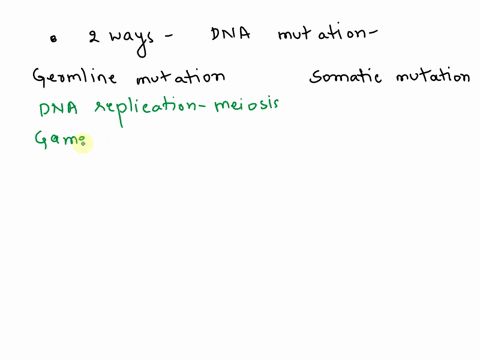 • 2 ways - DNA mutation-
Germline mutation Somatic mutation
DNA replication - meiosis
Game